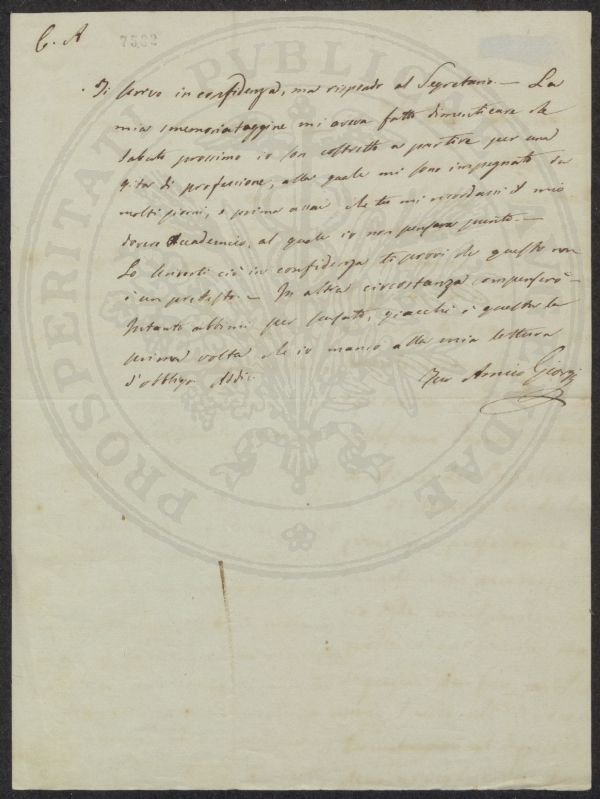 C. A.
7582
Ti scrivo in confidenza, ma rispondo al Segretario. — La
mia smemorataggine mi aveva fatto dimenticare che
Sabato prossimo io son costretto a partire per una
gita di professione, alla quale mi sono impegnato da
molti giorni, e prima assai che tu mi ricordassi il mio
dovere Accademico, al quale io non pensava punto. —
Lo scriverti ciò in confidenza ti provi che questo non
è un pretesto. — In altra circostanza compenserò —
Intanto abbimi per scusato, giacchè è questa la
prima volta che io manco alla mia lettura
d'obbligo. Addio.
Tuo Amico Giorgi
PROSPERITATI PVBLICAE